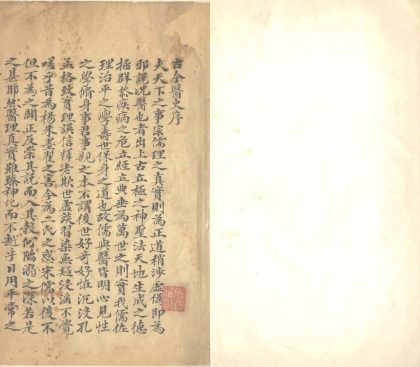 古今醫史序
夫天下之事宗儒理之真實則為正道稍涉虛偽即為
邪說况醫也者出上古立極之神聖法天地生成之德
拯群黎疾病之危立經立典垂為萬世之則實我儒佐
理治平之學壽世保身之道也故儒與醫皆明心見性
之學脩身事君事親之本不謂後世好奇好怪沉沒孔
孟格致實理誤信釋老欺世虛茂習染無短浸淫不覺
嗟乎昔為楊朱墨翟之害今為二氏之惑宋儒以後不
但不為之闢正反崇其說而入其教何陷溺之深若是
之甚耶然醫理真實雖臻神化而不越乎日用平常之